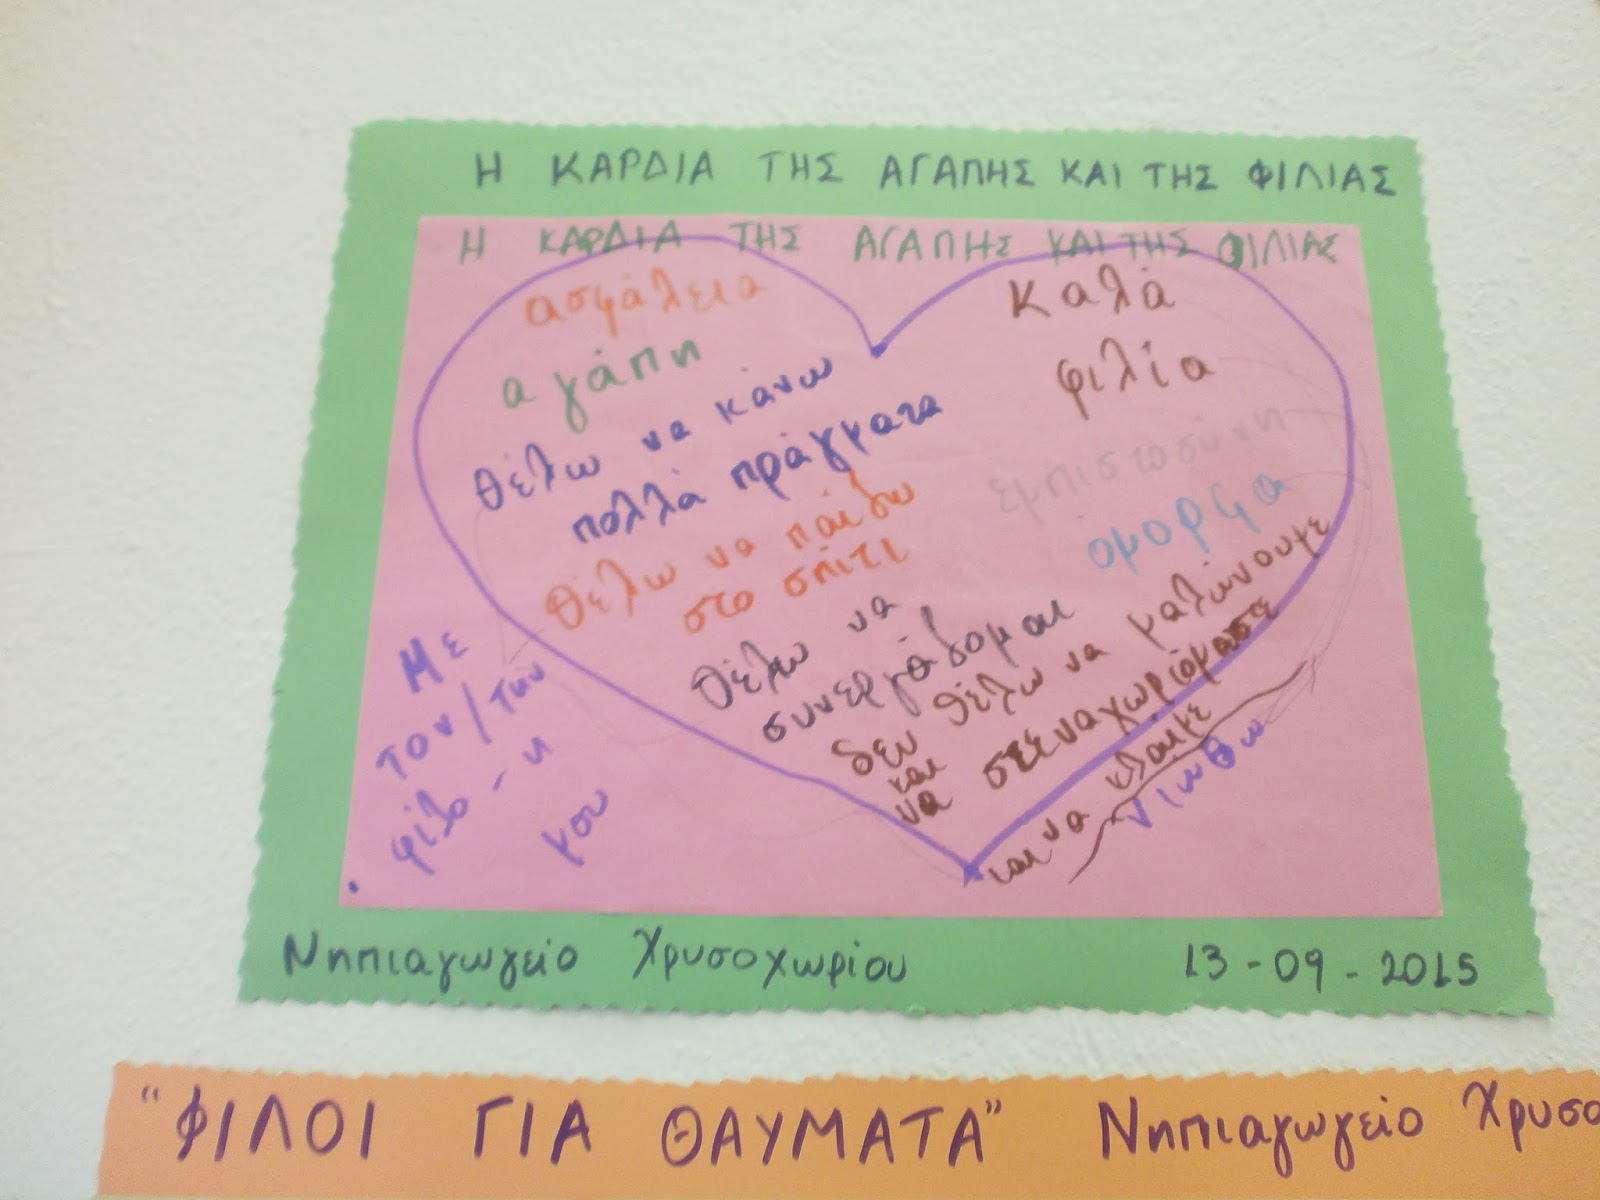 Η ΚΑΡΔΙΑ ΤΗΣ ΑΓΑΠΗΣ ΚΑΙ ΤΗΣ ΦΙΛΙΑΣ
Η ΚΑΡΔΙΑ ΤΗΣ ΑΓΑΠΗΣ ΚΑΙ ΤΗΣ ΦΙΛΙΑΣ
ασφάλεια
αγάπη
θέλω να κάνω
πολλά πράγματα
θέλω να παίζω
στο σπίτι
θέλω να
συνεργάζομαι
δεν θέλω να μαλώνουμε
και
να στεναχωριόμαστε
και να κλαίμε
καλά
φιλία
εμπιστοσύνη
όμορφα
νιώθω
Με
τον/την
φίλο-η
μου
Νηπιαγωγείο Χρυσοχωρίου 13-09-2015
"ΦΙΛΟΙ ΓΙΑ ΘΑΥΜΑΤΑ" Νηπιαγωγείο Χρυσο